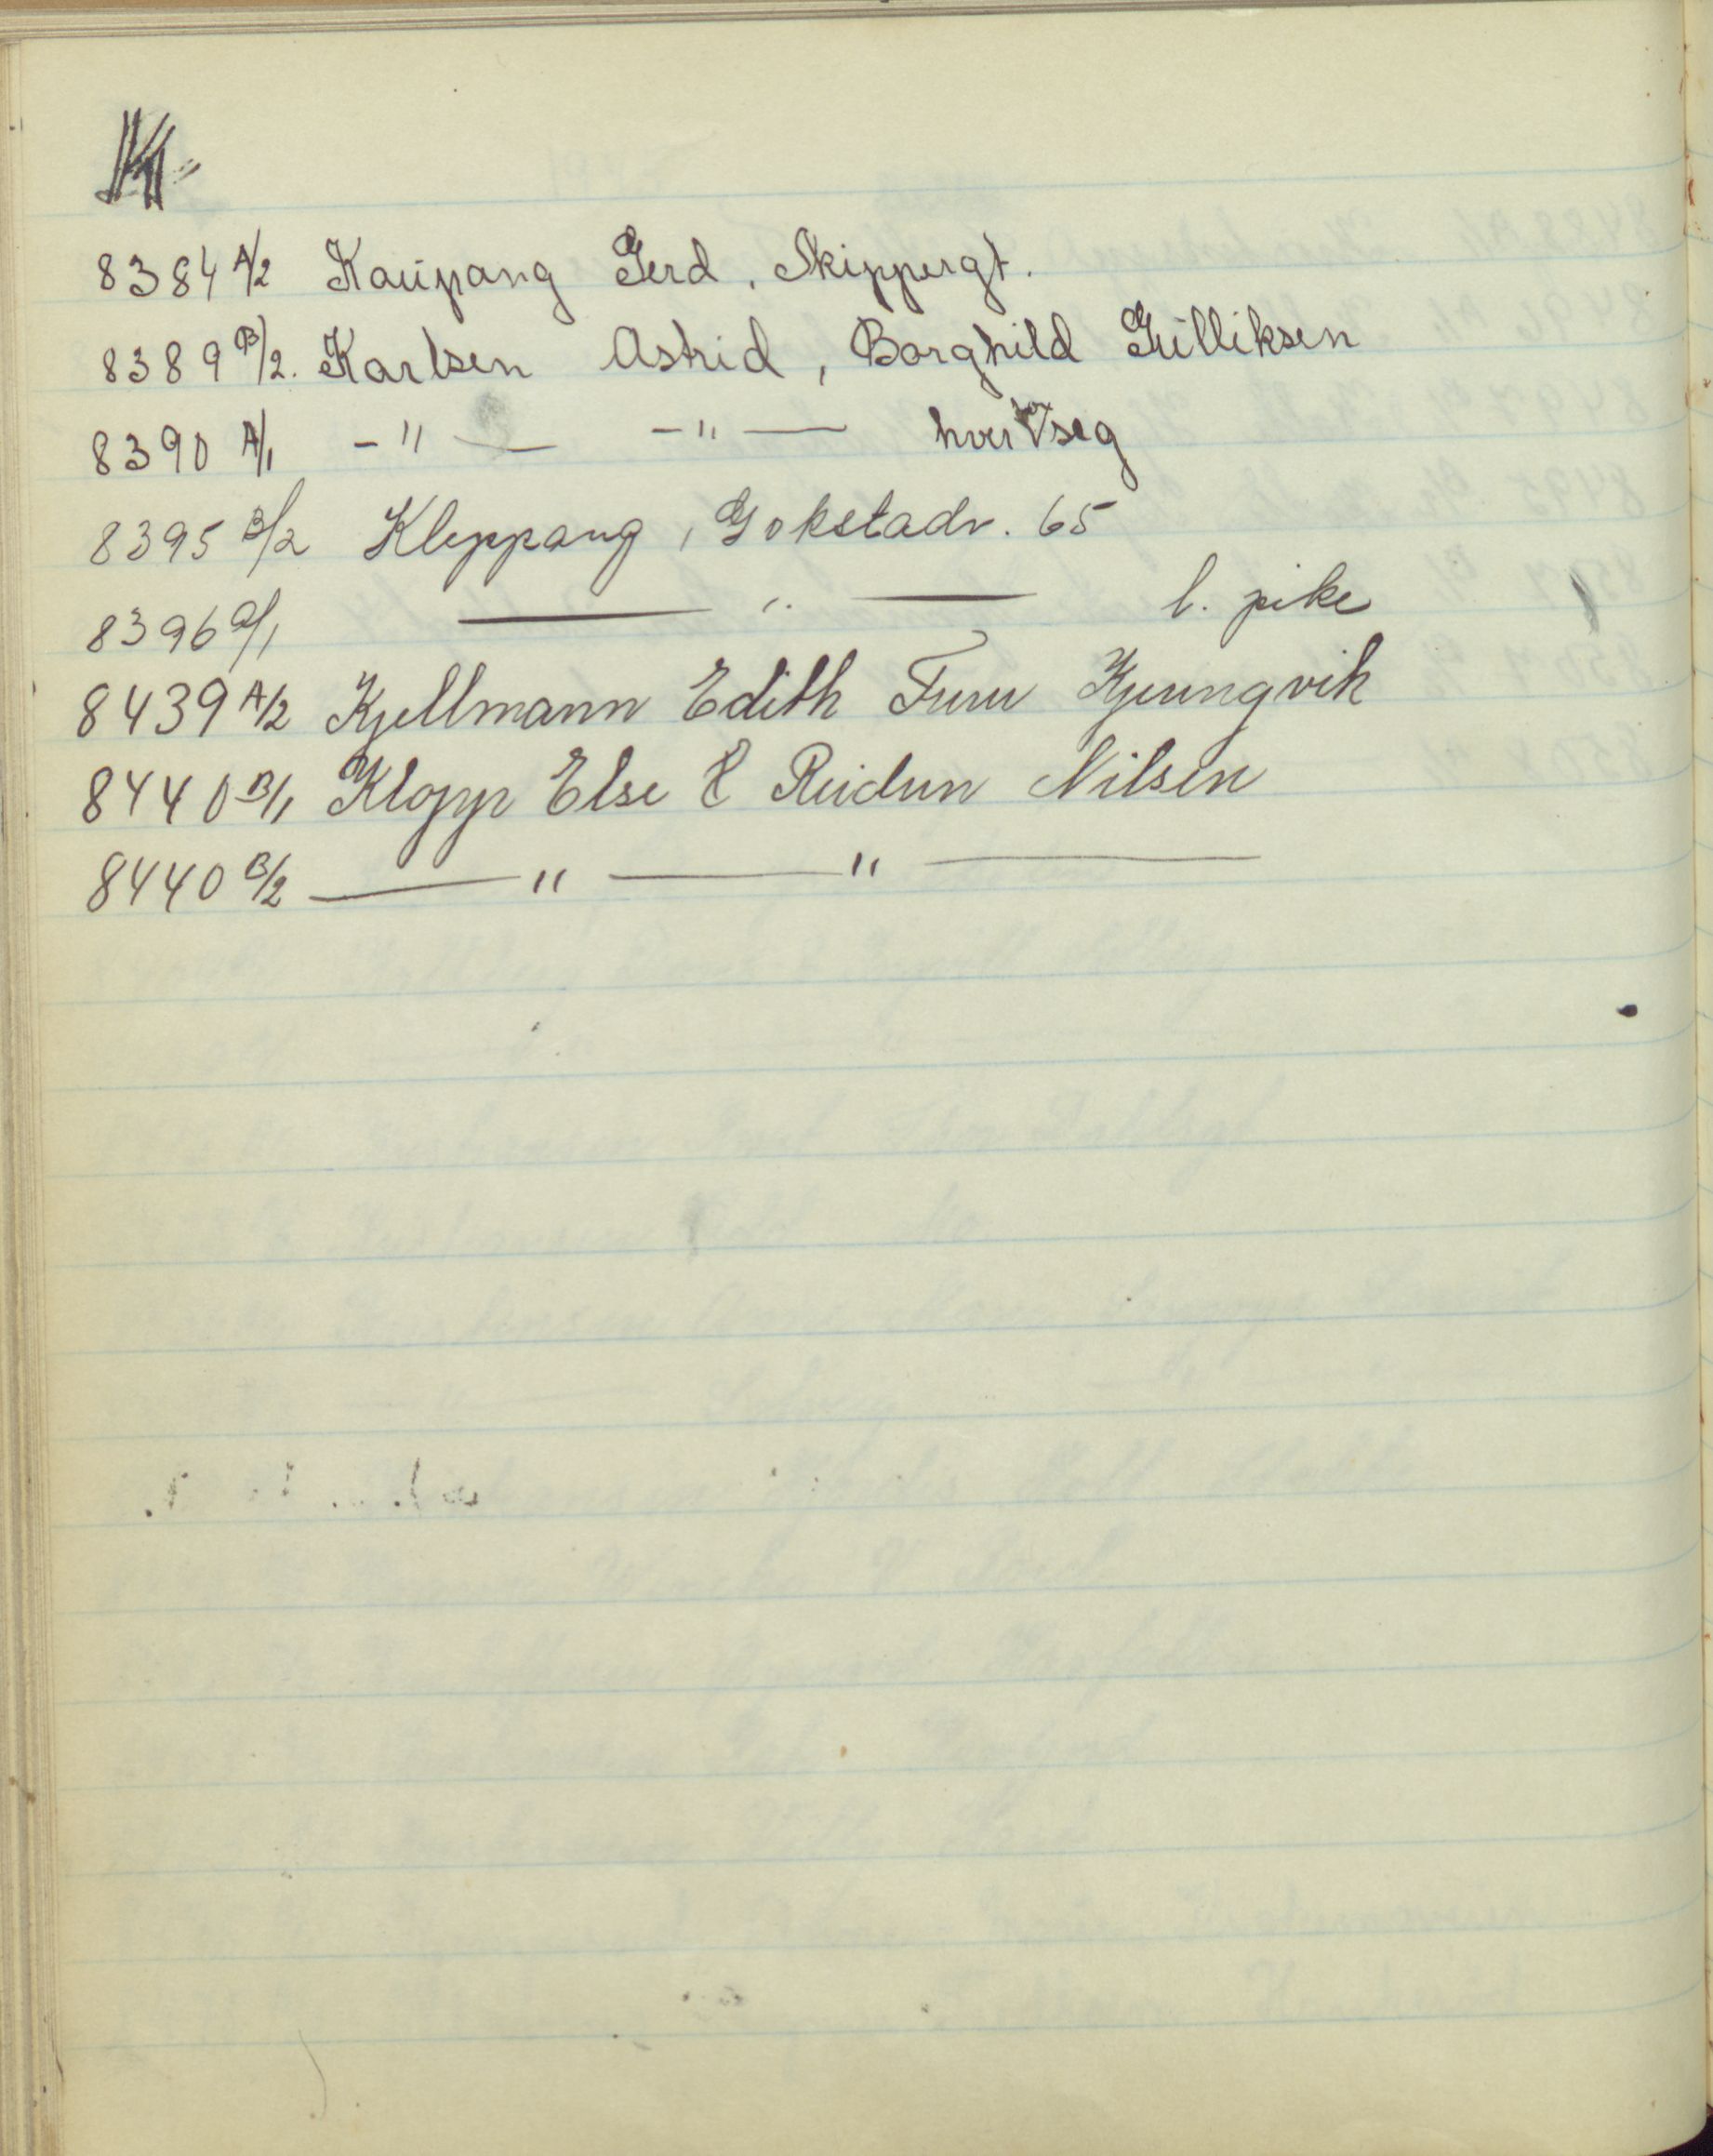 K
8384 A/2 Kaupang Gerd, Skippergt.
8389 B/2. Karlsen Astrid, Borghild Gulliksen
8390 A/1 -"- -"- hver for seg
8395 B/2 Kleppang, Gokstadv. 65
8396 a/1 —— " —— l. pike
8439 A/2 Kjellmann Edith Furu Kjerringvik
8440 B/1 Klopp Else & Reidun Nilsen
8440 B/2 —— " —— " ——